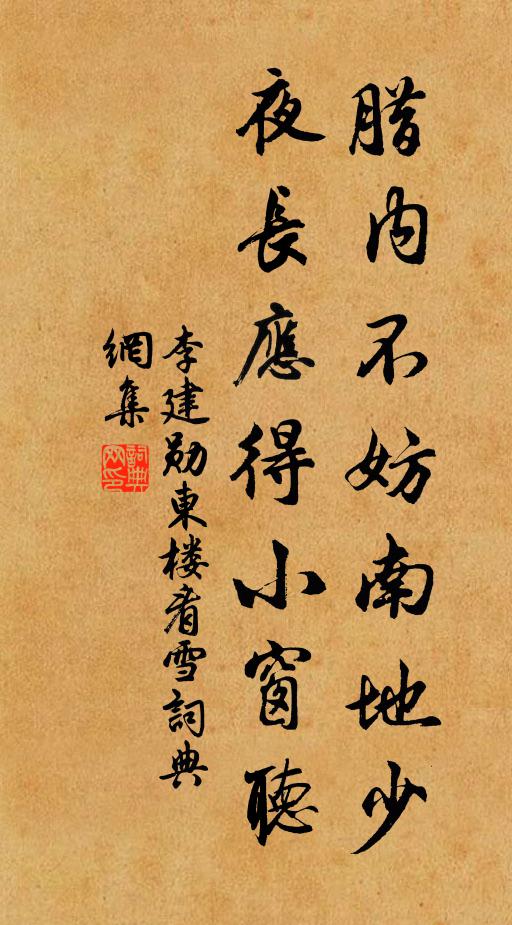 腊内不妨南地少
夜長應得小窗聽
李建勋東楼看雪詞典
網集
詞典網印